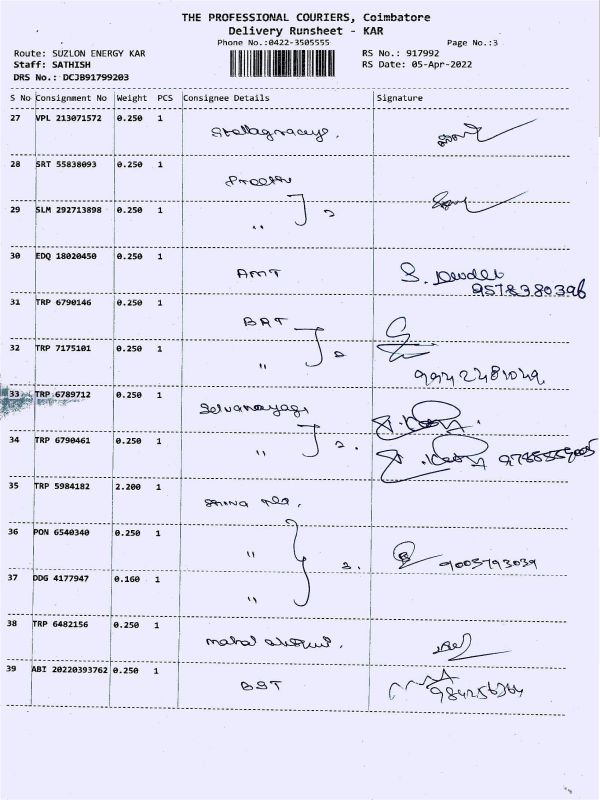 THE PROFESSIONAL COURIERS, Coimbatore
Delivery Runsheet - KAR
Phone No.:0422-3505555
Page No.:3
Route: SUZLON ENERGY KAR
RS No.: 917992
Staff: SATHISH
RS Date: 05-Apr-2022
DRS No.: DCJB91799203
S No Consignment No Weight PCS Consignee Details Signature
27 VPL 213071572 0.250 1
28 SRT 55838093 0.250 1
29 SLM 292713898 0.250 1
" 2
30 EDQ 18020450 0.250 1
AMT
9578380396
31 TRP 6790146 0.250 1
32 TRP 7175101 0.250 1
" 2
9942481049
33 TRP 6789712 0.250 1
Selvanayagi
34 TRP 6790461 0.250 1
" 2.
35 TRP 5984182 2.200 1
36 PON 6540340 0.250 1
" 3. 9005793039
37 DDG 4177947 0.160 1
"
38 TRP 6482156 0.250 1
39 ABI 20220393762 0.250 1
BST